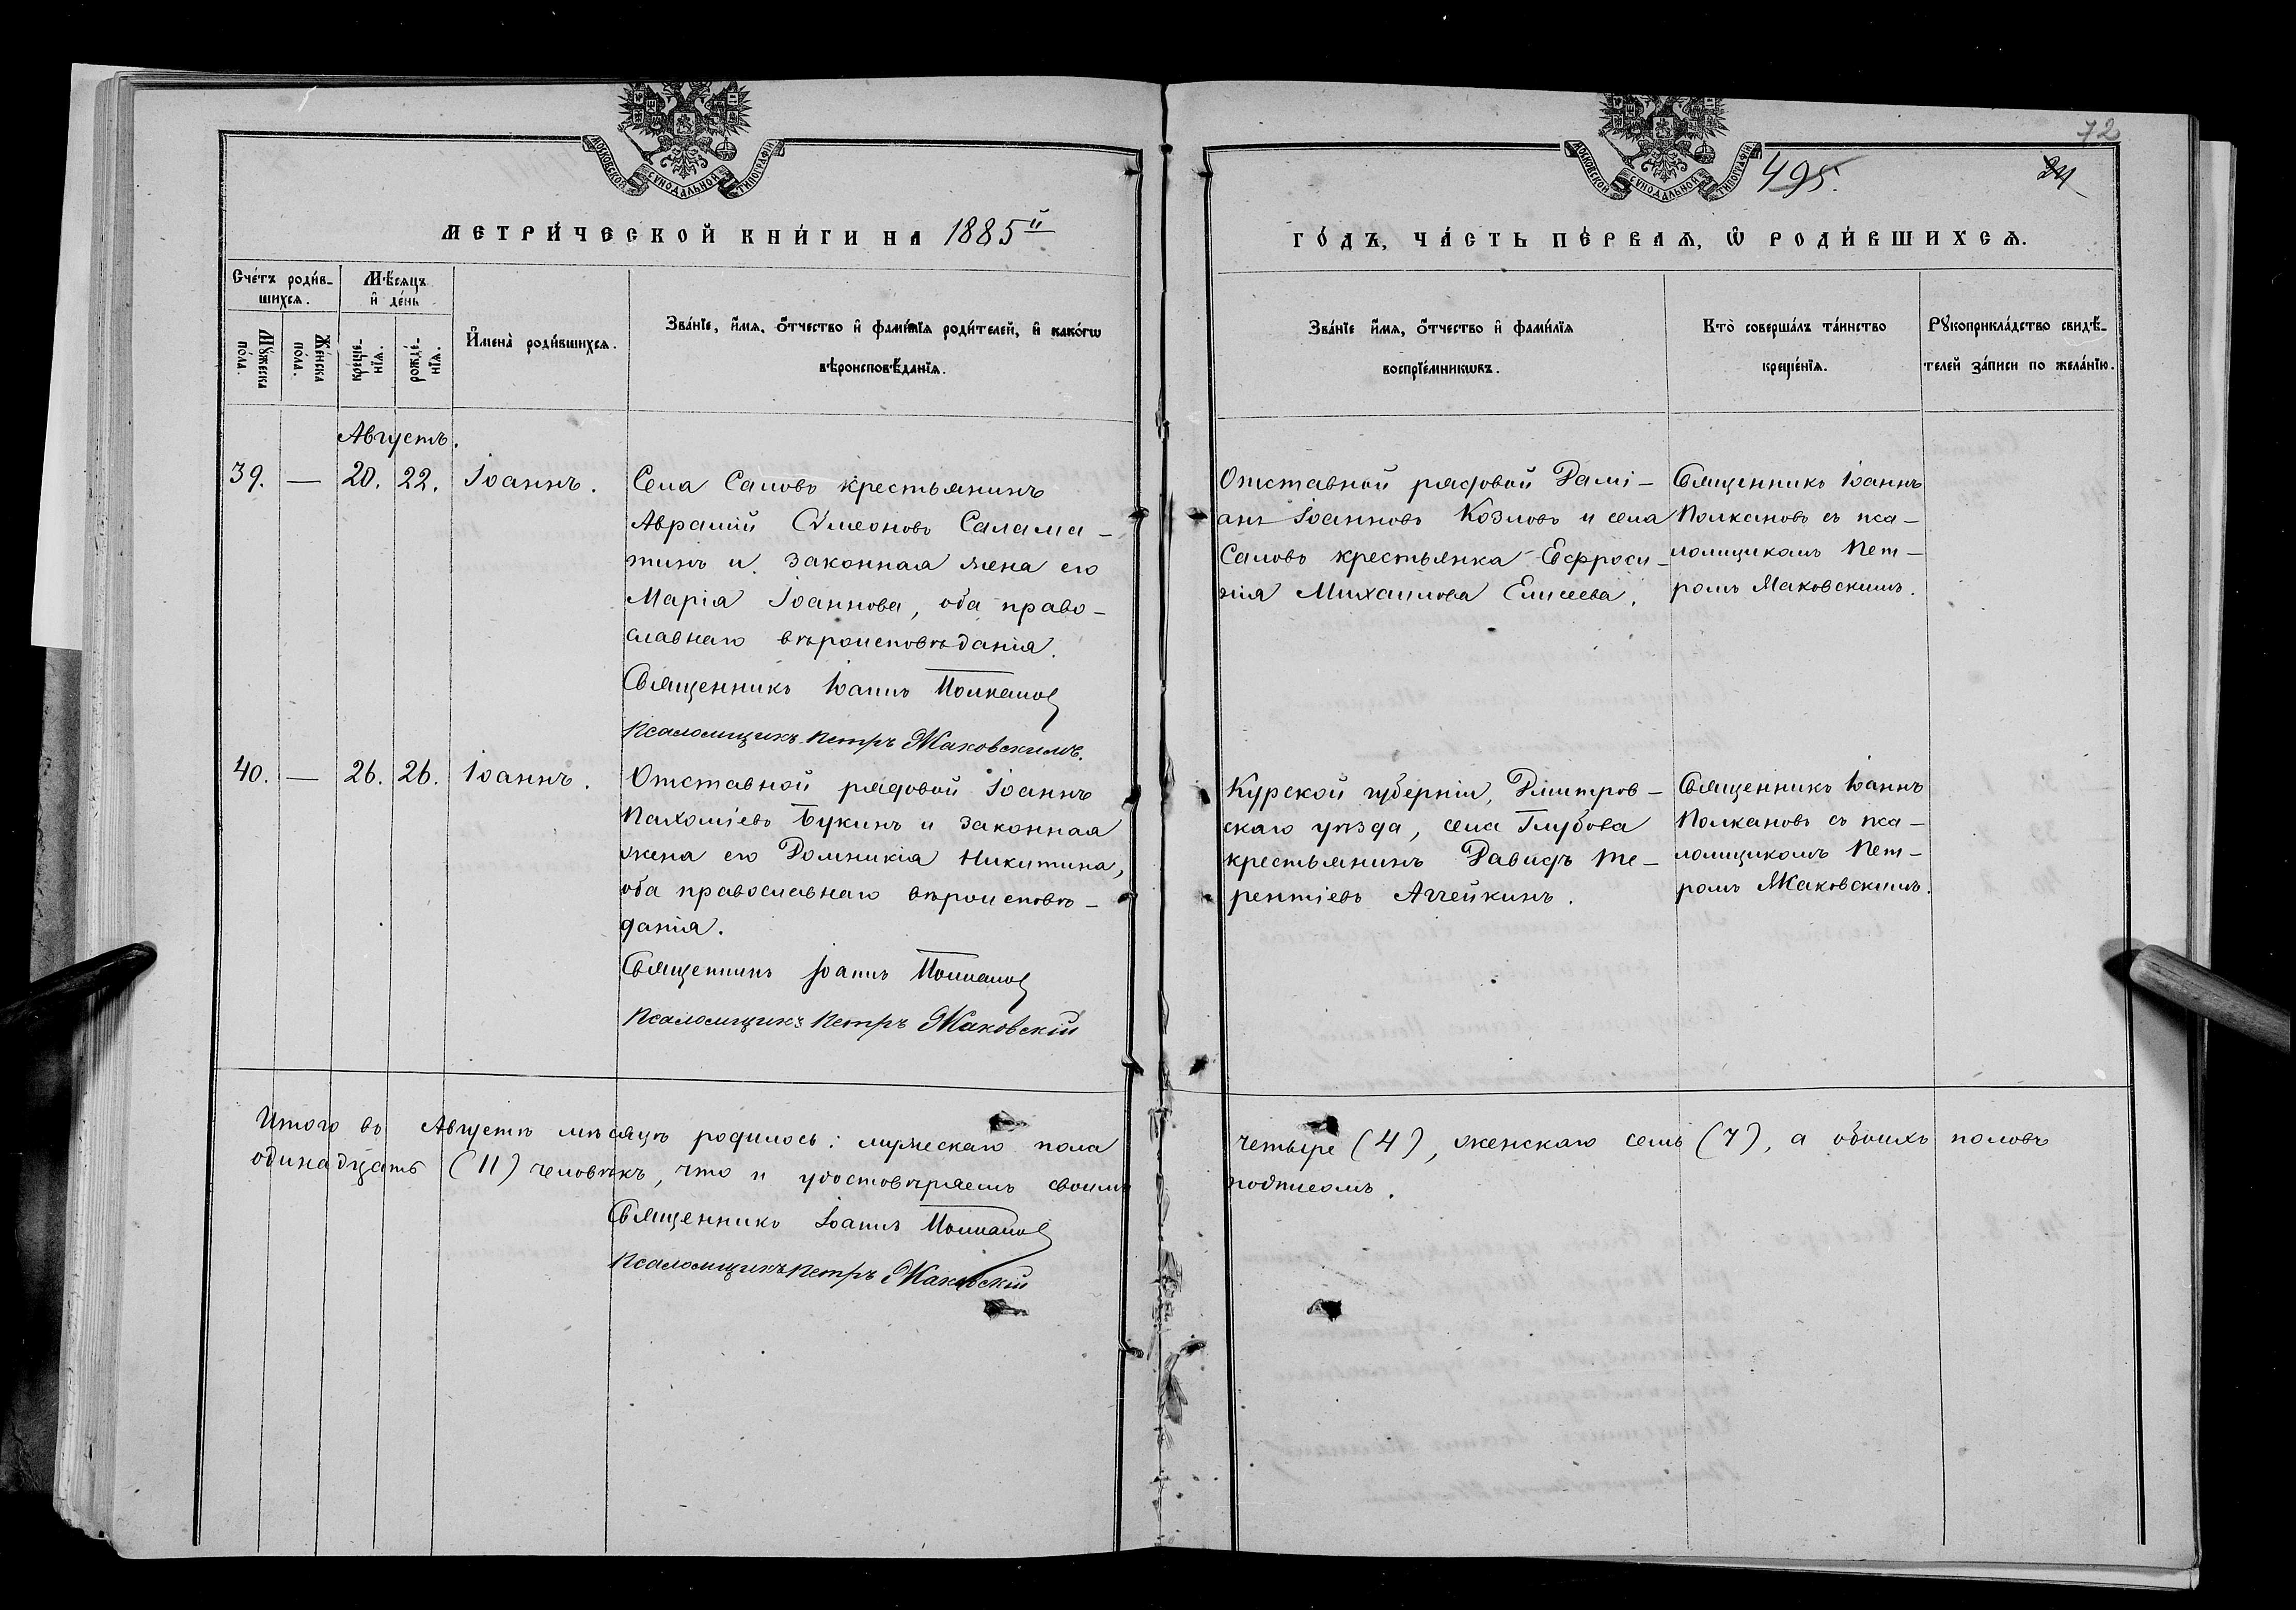 МОСКОВСКОЙ СѴНОДАЛЬНОЙ ТИПОГРАФІИ
МЕТРИ́ЧЕСКОЙ КНИ́ГИ НА 1885й
Сче́тъ роди́в-
шихсѧ.
Мѣ́сѧцъ
и҆ де́нь
Мꙋ́жеска
по́ла.
Же́нска
по́ла.
креще́-
нїѧ.
рожде́-
нїѧ.
И҆мена̀ роди́вшихсѧ.
Зва́нїе, и҆́мѧ, ѻ҆́тчество и҆ фами́лїѧ роди́телей, и҆ како́гѡ
вѣроисповѣ́данїѧ.
Августъ.
39. — 20. 22. Іоаннъ.
Села Саловъ крестьянинъ
Аврамій Сѵмеоновъ Салама-
тинъ и законная жена его
Марія Іоаннова, оба право-
славнаго вѣроисповѣданія.
Священникъ Іоаннъ Полканов
Псаломщикъ Петръ Маковскимъ.
40. — 26. 26. Іоаннъ.
Отставной рядовой Іоаннъ
Пахоміевъ Букинъ и законная
жена его Домникія Никитина,
оба православнаго вѣроисповѣ-
данія.
Священникъ Іоаннъ Полканов
Псаломщикъ Петръ Маковскій
Итого въ Августѣ мѣсяцѣ родилось: мужескаго пола
одинадцать (11) человѣкъ, что и удостовѣряемъ своимъ
Священникъ Іоаннъ Полканов
Псаломщикъ Петръ Маковскій
72
МОСКОВСКОЙ СѴНОДАЛЬНОЙ ТИПОГРАФІИ
495. 24
ГО́ДЪ, ЧА́СТЬ ПЕ́РВАѦ, Ѽ РОДИ́ВШИХСѦ.
Зва́нїе и҆́мѧ, ѻ҆́тчество и҆ фами́лїѧ
воспрїе́мникѡвъ.
Кто̀ соверша́лъ та́инство
креще́нїѧ.
Рꙋкоприкла́дство свидѣ́-
телей за́писи по жела́нїю.
Отставной рядовой Дамі-
анъ Іоанновъ Козловъ и села
Саловъ крестьянка Евфроси-
нія Михаилова Елисеева.
Священникъ Іоаннъ
Полкановъ съ пса-
ломщикомъ Пет-
ромъ Маковскимъ.
Курской губерніи, Дмитров-
скаго уѣзда, села Глубова
крестьянинъ Давидъ Те-
рентіевъ Аггейкинъ.
Священникъ Іоаннъ
Полкановъ съ пса-
ломщикомъ Пет-
ромъ Маковскимъ.
четыре (4), женскаго семь (7), а обоихъ половъ
подписомъ.